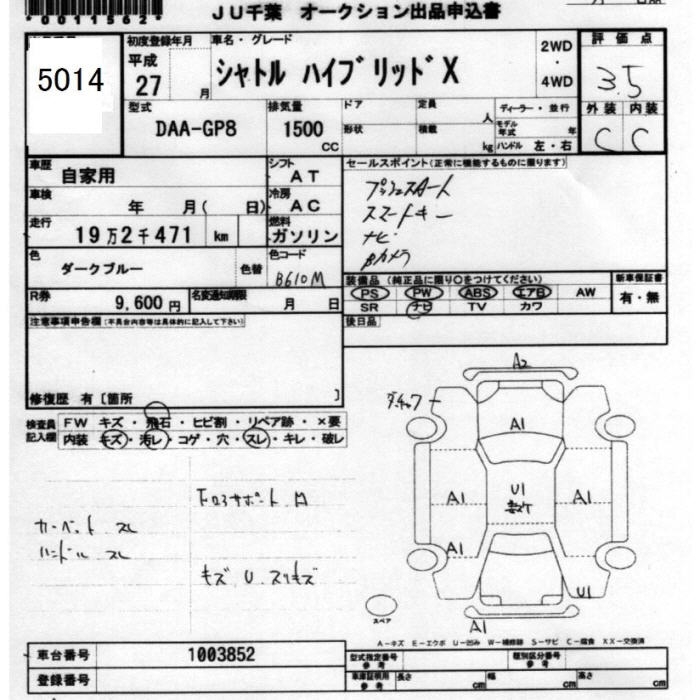 *0011562*
JU千葉 オークション出品申込書
5014
初度登録年月
平成
27 月
車名・グレード
シャトル ハイブリッド X
2WD
・
4WD
評価点
3.5
外装 内装
C C
型式
DAA-GP8
排気量
1500
CC
ドア
定員
人
形状
積載
kg
ディーラー・並行
モデル年式 年
ハンドル 左・右
車歴
自家用
シフト
AT
車検
年 月( 日)
冷房
AC
走行
19万2千471 km
燃料
ガソリン
色
ダークブルー
色替
色コード
B610M
R券
9,600 円
名変通知期限
月 日
セールスポイント(正常に機能するものに限ります)
プッシュスタート
スマートキー
ナビ
Bカメラ
装備品 (純正品に限り○をつけてください)
PS PW ABS エアB AW
SR ナビ TV カワ
新車保証書
有・無
後日品
注意事項申告欄(不具合内容等は具体的に記入して下さい)
修復歴 有〔箇所 〕
検査員記入欄
FW キズ・飛石・ヒビ割・リペア跡・×要
内装 キズ・汚レ・コゲ・穴・スレ・キレ・破レ
カーペット スレ
ハンドル スレ
下ロアサポート
キズ U スリキズ
A2
A1
A1
U1
A1
A1
U1
A1
スペア
A-キズ E-エクボ U-凹み W-補修跡 S-サビ C-腐食 XX-交換済
車台番号
1003852
登録番号
型式指定番号
参考
類別区分番号
参考
車庫証明用
参考
長さ cm
幅 cm
高さ cm